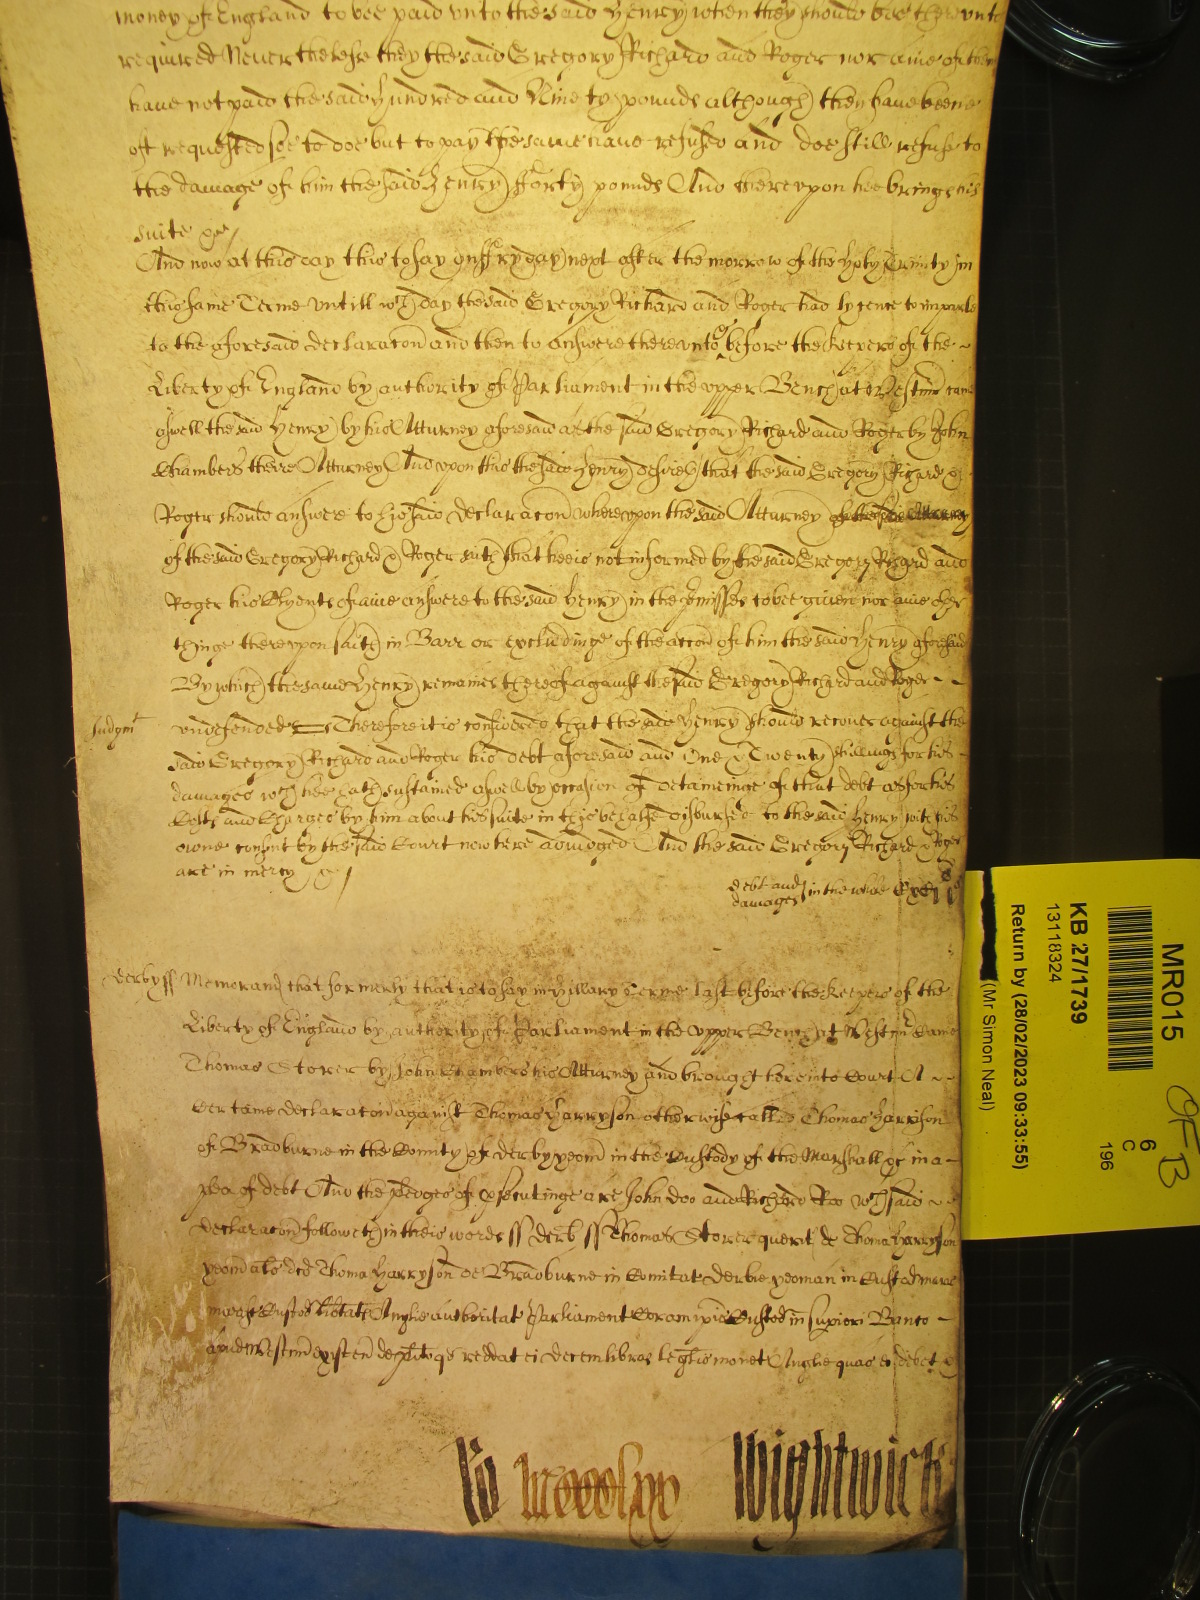 money of England to bee paid vnto the said Henry when they should bee therevnto
required Neuerthelesse they the said Gregory Richard and Roger nor anie of them
haue not paid the said hundred and Ninety pounds although then haue beene
oft requested soe to doe but to pay the same haue refused and doe still refuse to
the damage of him the said Henry fforty pounds And therevpon hee brings his
suite &c
And now at this day that is to say on ffryday next after the morrow of the holy Trinity in
this same Terme vntill wch day the said Gregory Richard and Roger had lycence to imparle
to the aforesaid declaracon and then to answere therevnto &c before the Keepers of the
Liberty of England by authority of Parliament in the vpper Bench at Westmr came
aswell the said Henry by his Atturney aforesaid as the said Gregory Richard and Roger by John
Chambers theire Atturney And vpon this the said Henry desireth that the said Gregory Richard &
Roger should answere to his said declaracon wherevpon the said Atturney
of the said Gregory Richard & Roger saith that hee is not informed by the said Gregory Richard and
Roger his Clyents of anie answere to the said Henry in the premisses to bee giuen nor anie other
thinge therevpon saith in Barr or excludinge of the accon of him the said Henry aforesaid
By which the same Henry remaines thereof against the said Gregory Richard and Roger
Judgmt vndefended Therefore it is considered that the said Henry should recouer against the
said Gregory Richard and Roger his debt aforesaid and One & Twenty shillings for his
damages wch hee hath sustained aswell by occasion of detaineinge of that debt as for his
Costs and Charges by him about his suite in this behalfe disbursed to the said Henry with his
owne consent by the said Court now here adiudged And the said Gregory Richard & Roger
are in mercy &c
debt and damages in the whole
Derby ss Memorand that formerly that is to say in Hillary Terme last before the Keepers of the
Liberty of England by authority of Parliament in the vpper Bench at Westmr Came
Thomas Storer by John Chambers his Atturney and brought here into Court A
Certaine declaracon against Thomas Harryson otherwise called Thomas Harrison
of Bradburne in the County of Derby yeom in the Custody of the Marshall &c in a
plea of debt And the pledges of psecutinge are John Doo and Richard Roo wch said
declaracon followeth in theis words ss Derb ss Thomas Storer querit de Thoma Harryson
yeom als dco Thoma Harryson de Bradburne in Comitat Derbie yeoman in Custod marr
maresc Custod libtatis Anglie authoritat Parliament Coram ipis Custod in supiori Banco
apud Westm existen de plito qd reddat ei decem libras legalis monet Anglie quas ei debet &
Ro mcccclxx Wightwick
MR015
KB 27/1739
13118324
Return by (28/02/2023 09:33:55)
(Mr Simon Neal)
6
C
196
OFB